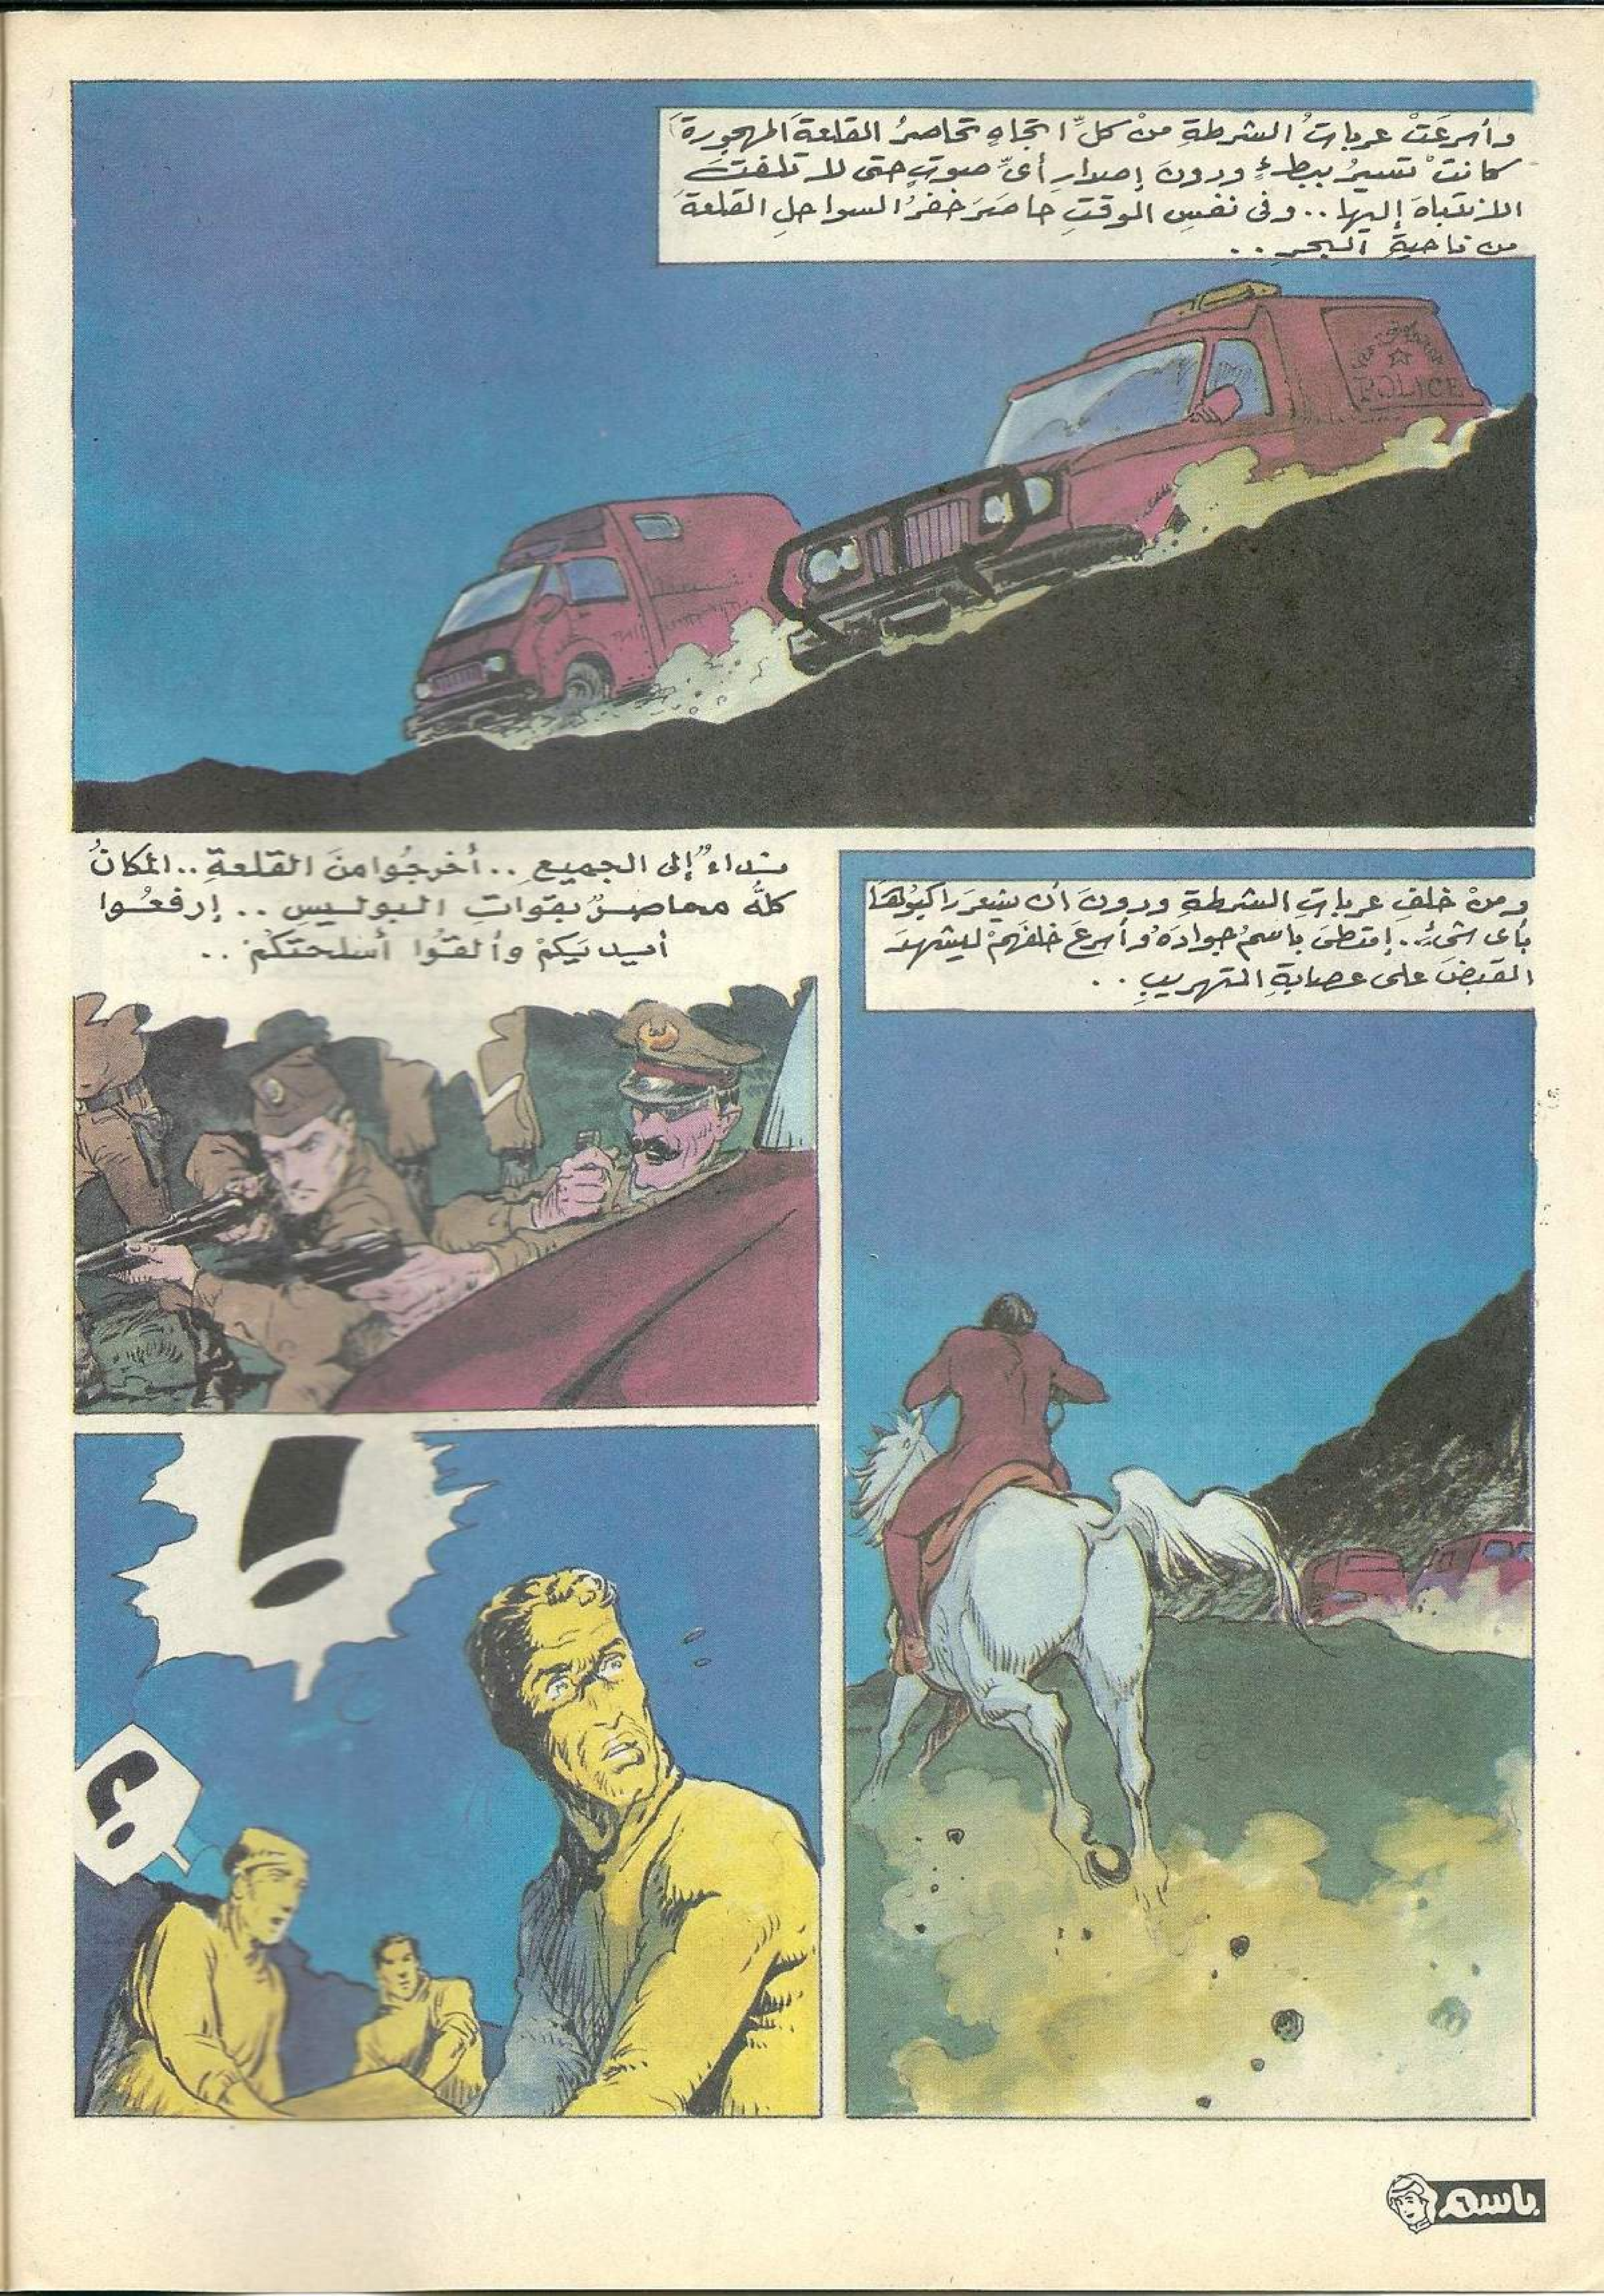 وأسرعَتْ عرباتُ الشرطةِ منْ كلِّ اتجاهٍ تحاصرُ القلعةَ المهجورةَ
كانتْ تسيرُ ببطءٍ ودونَ إصدارِ أىِّ صوتٍ حتى لا تلفتَ
الانتباهَ إليها .. وفى نفسِ الوقتِ حاصَرَ خفرُ السواحلِ القلعةَ
من ناحيةِ البحرِ ..
POLICE
ومنْ خلفِ عرباتِ الشرطةِ ودونَ أن يشعرَ راكبُوهَا
بأى شىْءٍ .. إمتطىَ باسمُ جوادَهُ وأسرعَ خلفَهمْ ليشهدَ
القبضَ على عصابةِ التهريبِ ..
نداءٌ إلى الجميعِ .. أخرجُوا منَ القلعةِ .. المكانُ
كلُّهُ محاصرٌ بقواتِ البوليسِ .. إرفعُوا
أيديَكمْ وألقوُا أسلحتَكمْ ..
!
؟
باسم